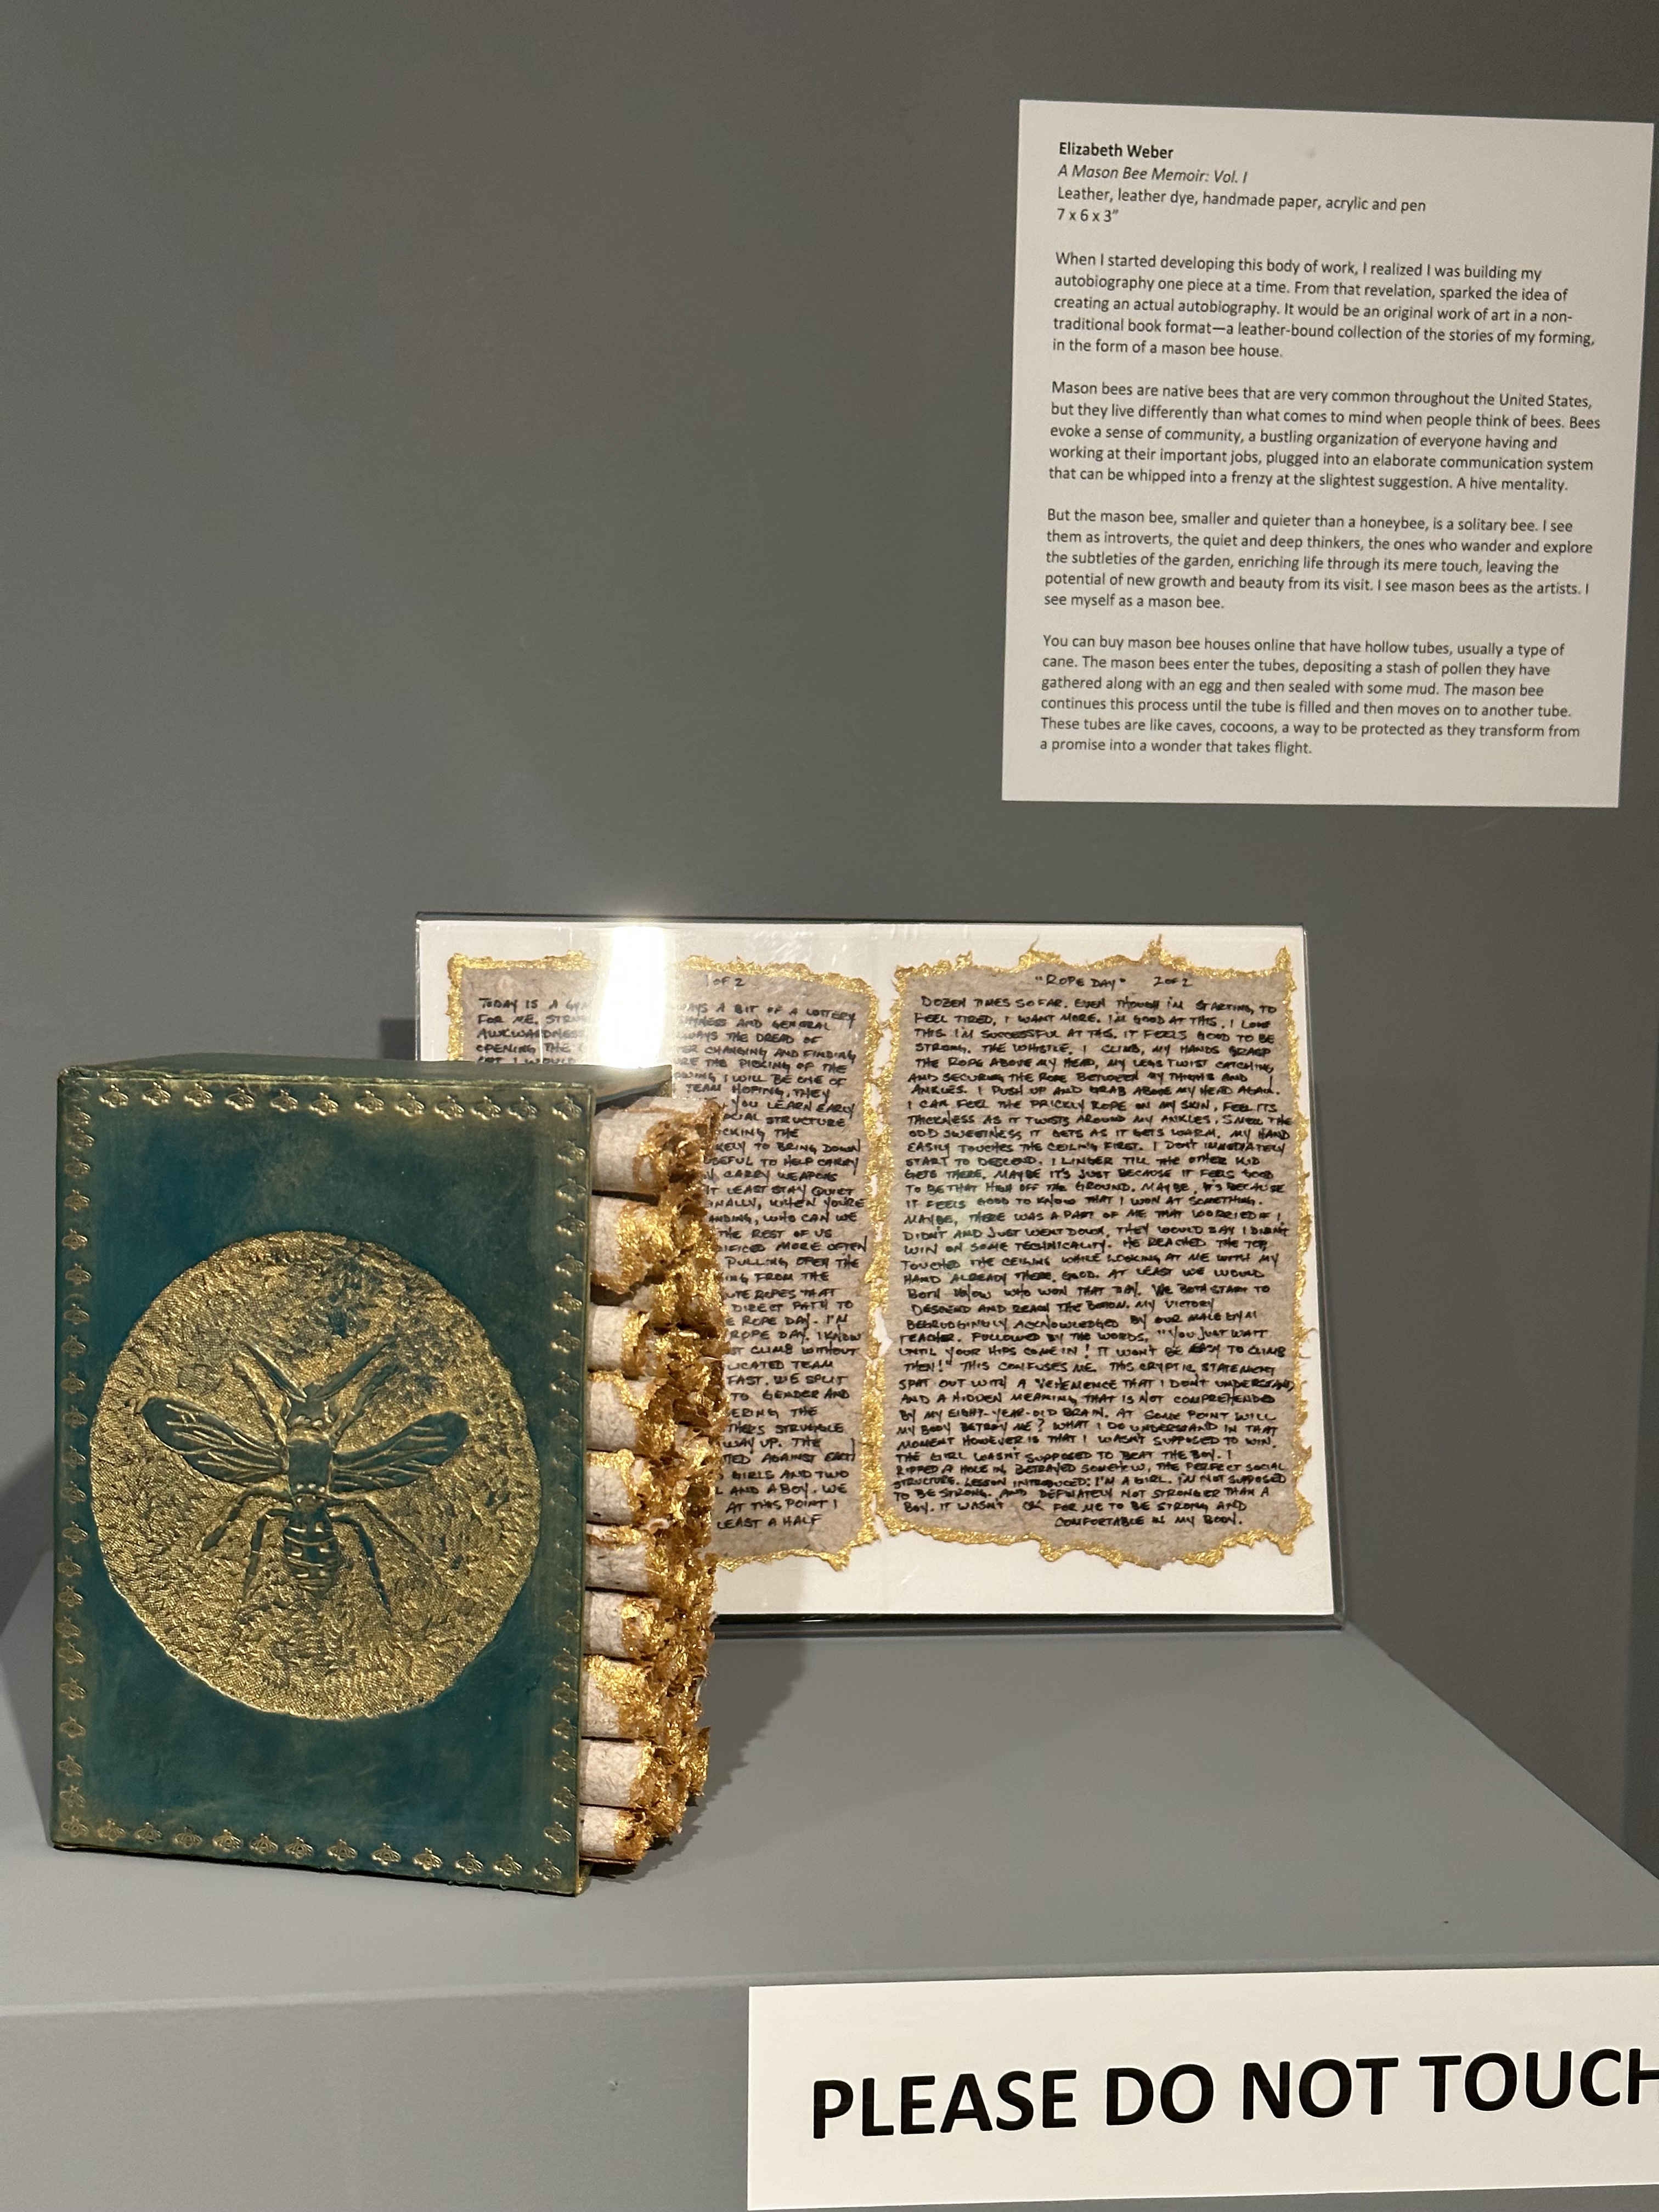 Elizabeth Weber
A Mason Bee Memoir: Vol. I
Leather, leather dye, handmade paper, acrylic and pen
7 x 6 x 3"
When I started developing this body of work, I realized I was building my
autobiography one piece at a time. From that revelation, sparked the idea of
creating an actual autobiography. It would be an original work of art in a non-
traditional book format—a leather-bound collection of the stories of my forming,
in the form of a mason bee house.
Mason bees are native bees that are very common throughout the United States,
but they live differently than what comes to mind when people think of bees. Bees
evoke a sense of community, a bustling organization of everyone having and
working at their important jobs, plugged into an elaborate communication system
that can be whipped into a frenzy at the slightest suggestion. A hive mentality.
But the mason bee, smaller and quieter than a honeybee, is a solitary bee. I see
them as introverts, the quiet and deep thinkers, the ones who wander and explore
the subtleties of the garden, enriching life through its mere touch, leaving the
potential of new growth and beauty from its visit. I see mason bees as the artists. I
see myself as a mason bee.
You can buy mason bee houses online that have hollow tubes, usually a type of
cane. The mason bees enter the tubes, depositing a stash of pollen they have
gathered along with an egg and then sealed with some mud. The mason bee
continues this process until the tube is filled and then moves on to another tube.
These tubes are like caves, cocoons, a way to be protected as they transform from
a promise into a wonder that takes flight.
1 OF 2
TODAY IS A A BIT OF A LOTTERY
FOR ME. AND GENERAL
AWKWARDNESS THE DREAD OF
OPENING THE CHANGING AND FINDING
THE PICKING OF THE
I WILL BE ONE OF
TEAM HOPING, THEY
YOU LEARN EARLY
SOCIAL STRUCTURE
THE
TO BRING DOWN
TO HELP CARRY
CARRY WEAPONS
LEAST STAY QUIET
WHEN YOU'RE
WHO CAN WE
THE REST OF US
MORE OFTEN
PULLING OPEN THE
FROM THE
ROPES THAT
DIRECT PATH TO
ROPE DAY. I'M
ROPE DAY. I KNOW
CLIMB WITHOUT
TEAM
FAST. WE SPLIT
TO GENDER AND
THE
STRUGGLE
WAY UP. THE
AGAINST EACH
GIRLS AND TWO
AND A BOY. WE
AT THIS POINT I
LEAST A HALF
"ROPE DAY" 2 OF 2
DOZEN TIMES SO FAR. EVEN THOUGH I'M STARTING TO
FEEL TIRED, I WANT MORE. I'M GOOD AT THIS. I LOVE
THIS. I'M SUCCESSFUL AT THIS. IT FEELS GOOD TO BE
STRONG. THE WHISTLE. I CLIMB, MY HANDS GRASP
THE ROPE ABOVE MY HEAD, MY LEGS TWIST CATCHING
AND SECURING THE ROPE BETWEEN MY THIGHS AND
ANKLES. I PUSH UP AND GRAB ABOVE MY HEAD AGAIN.
I CAN FEEL THE PRICKLY ROPE ON MY SKIN, FEEL ITS
THICKNESS AS IT TWISTS AROUND MY ANKLES, SMELL THE
ODD SWEETNESS IT GETS AS IT GETS WARM. MY HAND
EASILY TOUCHES THE CEILING FIRST. I DON'T IMMEDIATELY
START TO DESCEND. I LINGER TILL THE OTHER KID
GETS THERE. MAYBE IT'S JUST BECAUSE IT FEELS GOOD
TO BE THAT HIGH OFF THE GROUND. MAYBE, IT'S BECAUSE
IT FEELS GOOD TO KNOW THAT I WON AT SOMETHING.
MAYBE, THERE WAS A PART OF ME THAT WORRIED IF I
DIDN'T AND JUST WENT DOWN, THEY WOULD SAY I DIDN'T
WIN ON SOME TECHNICALITY. HE REACHED THE TOP,
TOUCHED THE CEILING WHILE LOOKING AT ME WITH MY
HAND ALREADY THERE. GOOD. AT LEAST WE WOULD
BOTH KNOW WHO WON THAT DAY. WE BOTH START TO
DESCEND AND REACH THE BOTTOM. MY VICTORY
BEGRUDGINGLY ACKNOWLEDGED BY OUR MALE GYM
TEACHER. FOLLOWED BY THE WORDS, "YOU JUST WAIT
UNTIL YOUR HIPS COME IN! IT WON'T BE EASY TO CLIMB
THEN!" THIS CONFUSES ME. THIS CRYPTIC STATEMENT
SPAT OUT WITH A VEHEMENCE THAT I DON'T UNDERSTAND,
AND A HIDDEN MEANING THAT IS NOT COMPREHENDED
BY MY EIGHT-YEAR-OLD BRAIN. AT SOME POINT WILL
MY BODY BETRAY ME? WHAT I DO UNDERSTAND IN THAT
MOMENT HOWEVER IS THAT I WASN'T SUPPOSED TO WIN.
THE GIRL WASN'T SUPPOSED TO BEAT THE BOY. I
RIPPED A HOLE IN, BETRAYED SOMEHOW, THE PERFECT SOCIAL
STRUCTURE. LESSON INTRODUCED: I'M A GIRL. I'M NOT SUPPOSED
TO BE STRONG. AND DEFINATELY NOT STRONGER THAN A
BOY. IT WASN'T OK FOR ME TO BE STRONG AND
COMFORTABLE IN MY BODY.
PLEASE DO NOT TOUCH